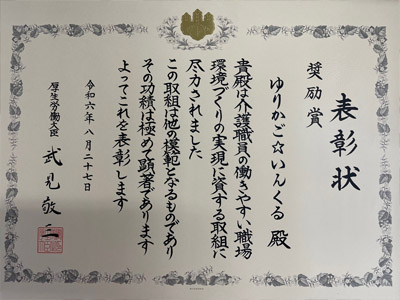 表彰状
奨励賞
ゆりかご☆いんくる 殿
貴殿は介護職員の働きやすい職場
環境づくりの実現に資する取組に
尽力されました
この取組は他の模範となるものであり
その功績は極めて顕著であります
よってこれを表彰します
令和六年八月二十七日
厚生労働大臣 武見敬三